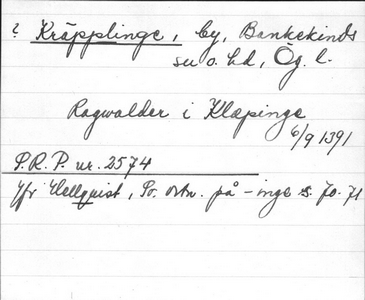 ? Kräpplinge, by, Bankekinds
su o. hd, Ög. l.
Ragwalder i Klæpinge
6/9 1391
P.R.P. nr. 2574
Jfr Hellquist, Sv. ortn. på -inge s. 70-71